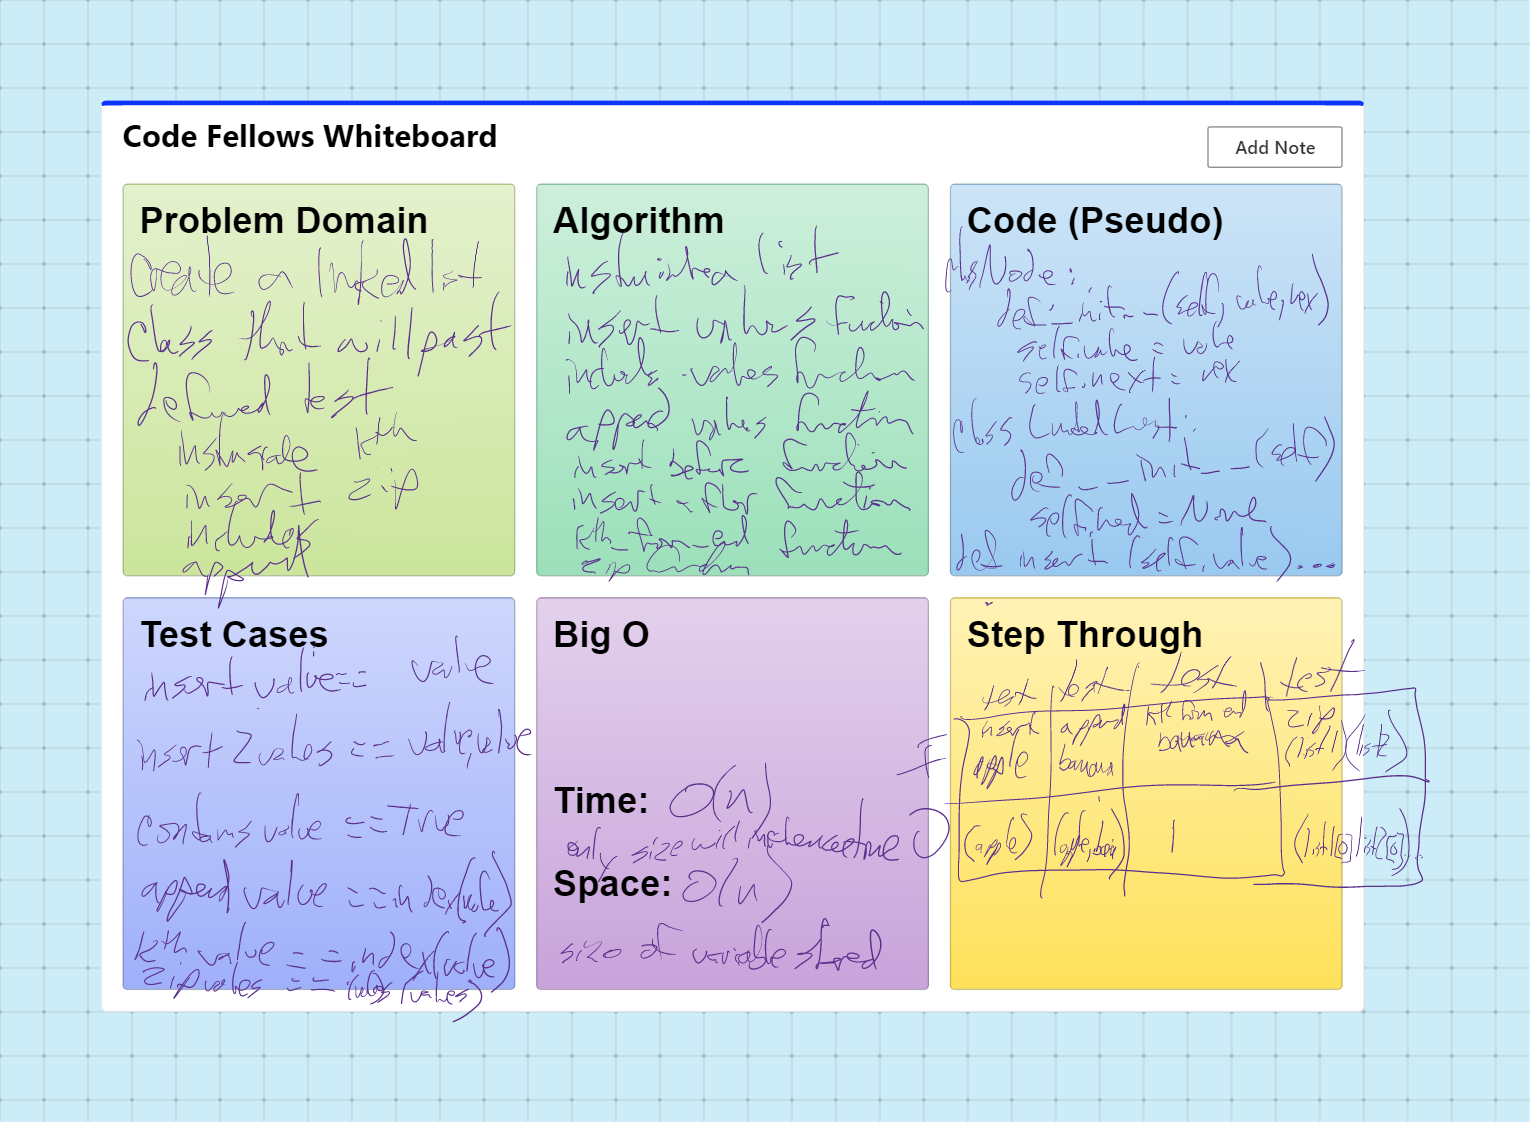 Code Fellows Whiteboard
Add Note
Problem Domain
Create a linked list
class that will past
defined test
instantiate kth
insert zip
includes
append
Algorithm
list
insert values function
include values function
append values function
insert before function
insert after function
kth_from_end function
zip function
Code (Pseudo)
class Node:
def __init__(self, value, nex)
self.value = value
self.next = nex
class Linked List:
def __init__(self)
self.head = None
def insert (self, value)....
Test Cases
insert value == value
insert 2 values == value, value
contains value == True
append value == index(value)
kth value == index(value)
zip values == (values)
Big O
Time: O(n)
only size will time
Space: O(n)
size of variable stored
Step Through
test test test test
insert append kth from end zip
apple banana (list1)(list2)
I
O
(apple) 1 (list1[0] list2[0])